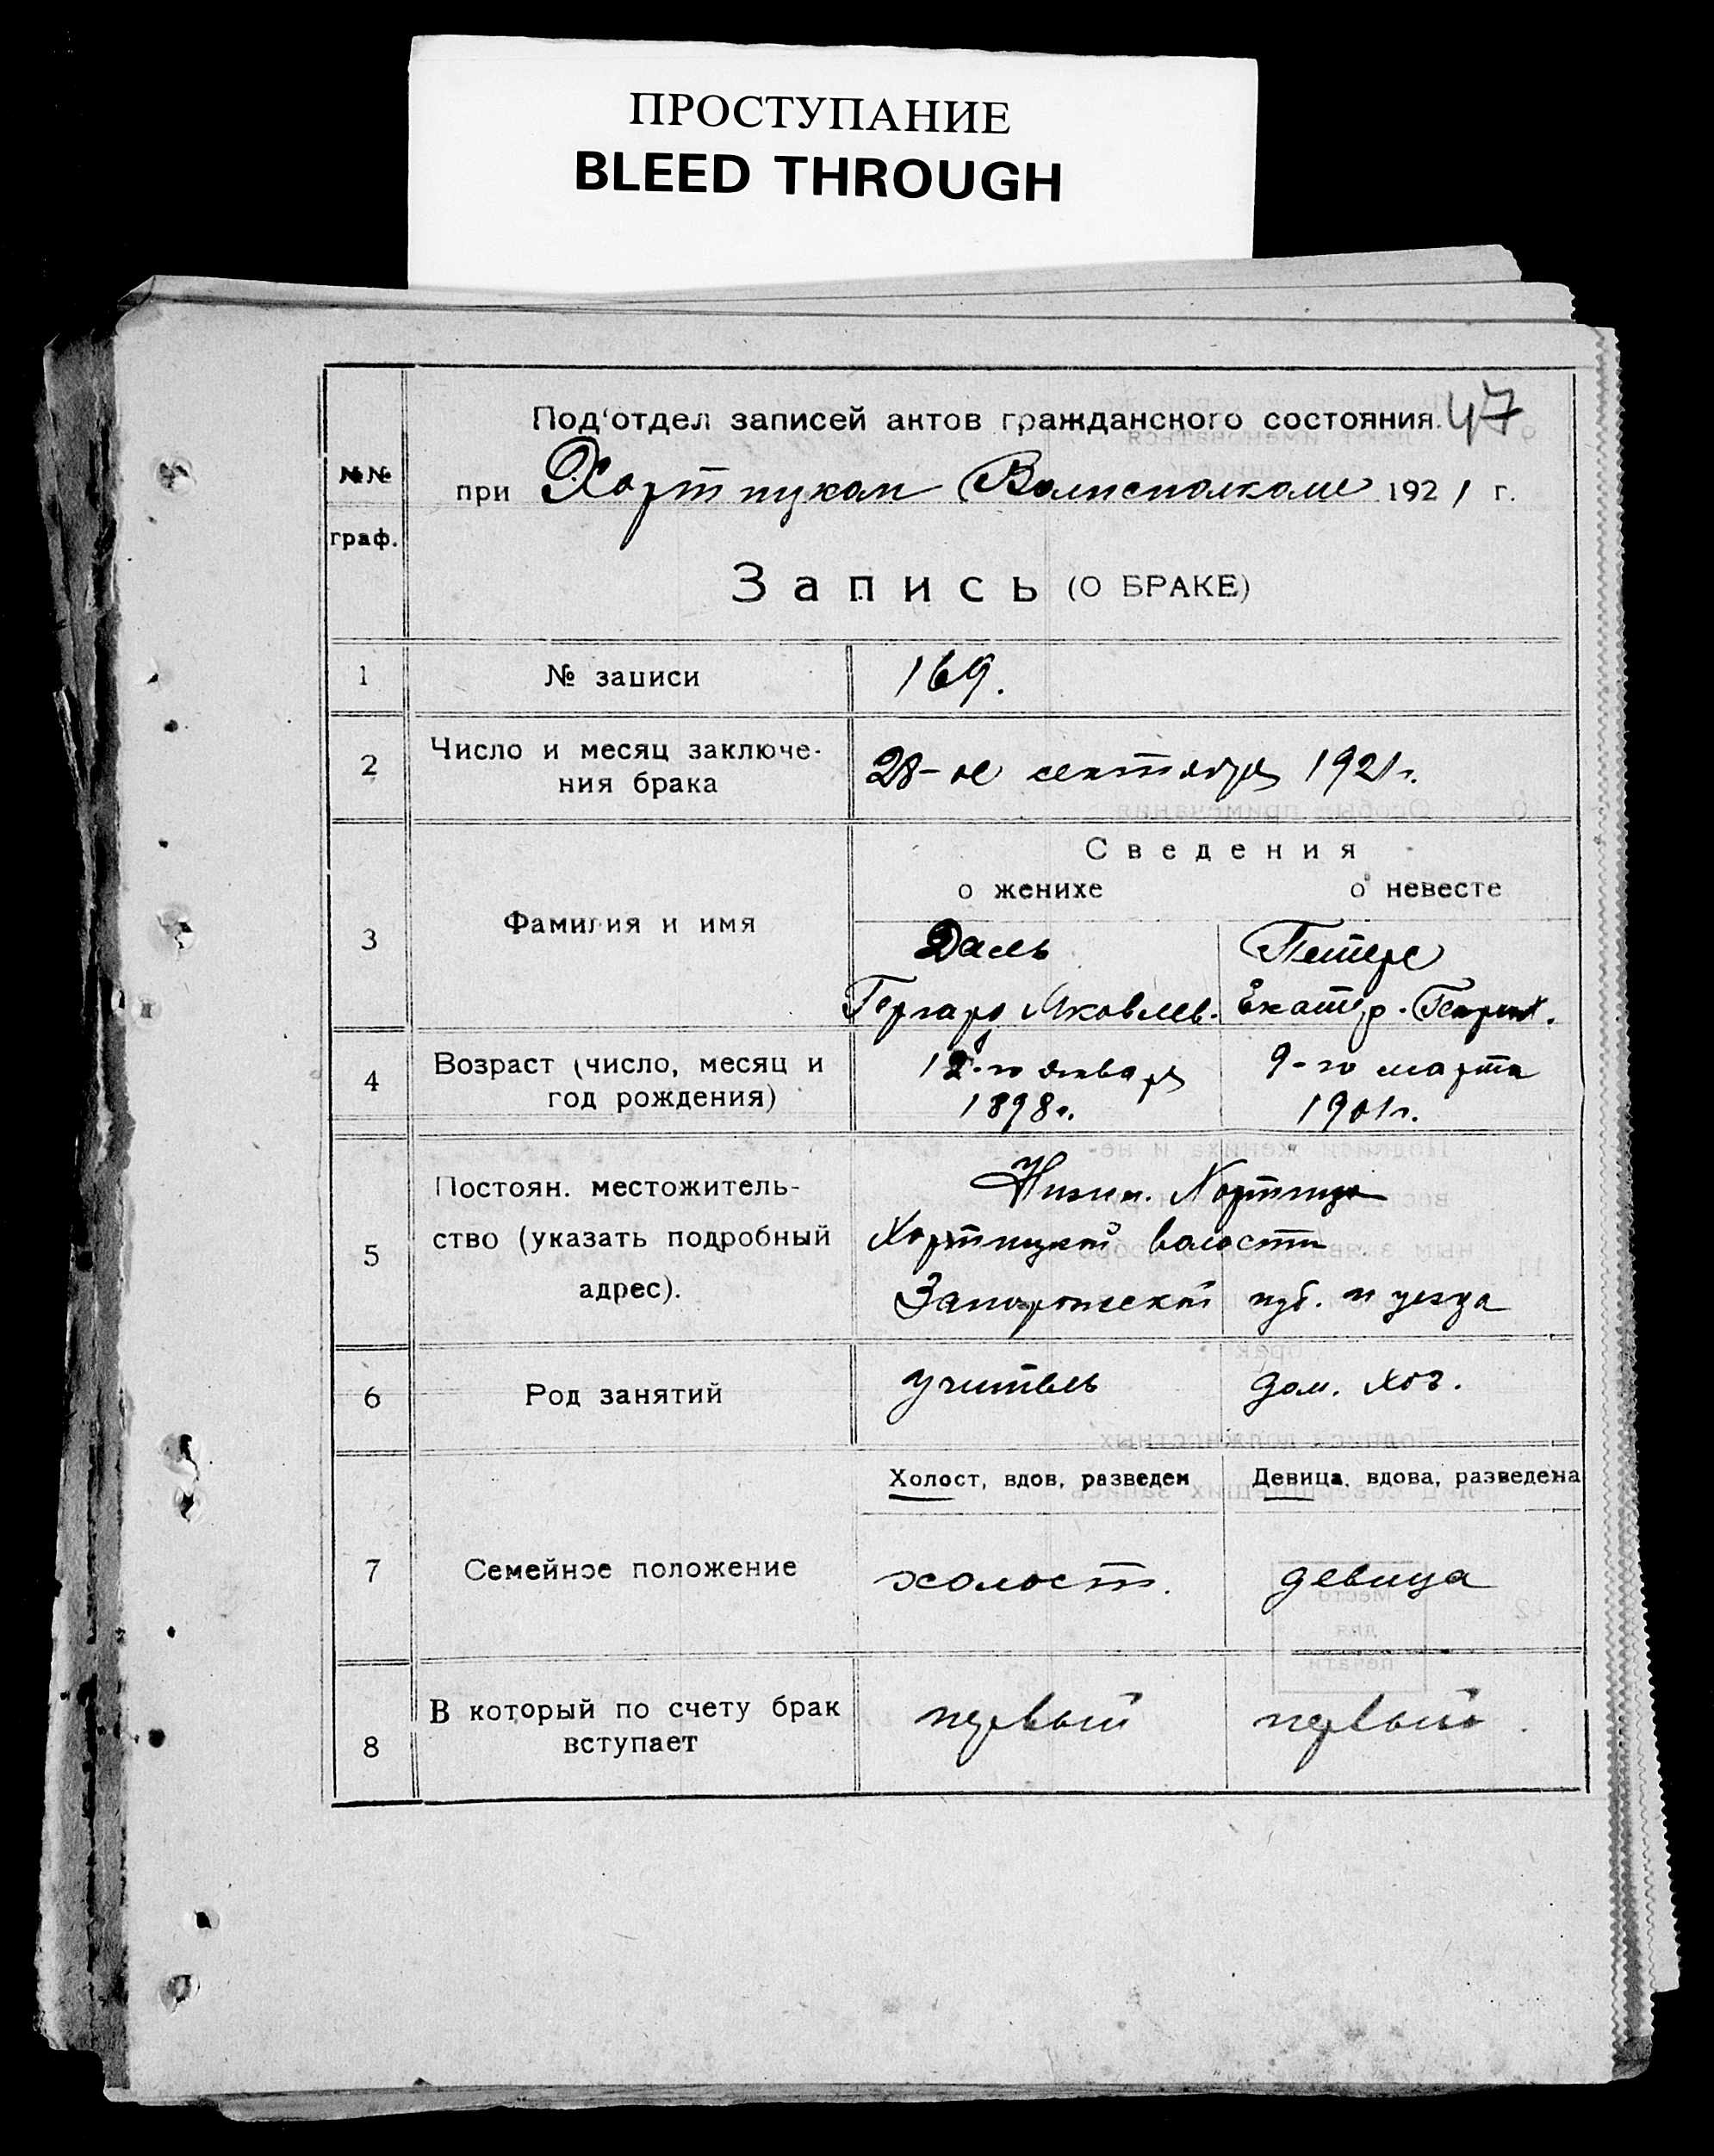 ПРОСТУПАНИЕ
BLEED THROUGH
Под'отдел записей актов гражданского состояния. 47
№№
граф.
при Хортицком Волисполкоме 1921 г.
Запись (О БРАКЕ)
1 № записи 169.
2 Число и месяц заключе-
ния брака
28-ое сентября 1921 г.
Сведения
о женихе о невесте
3 Фамилия и имя
Даль Петерс
Гергард Яковлев. Екатер. Генрих.
4 Возраст (число, месяц и
год рождения)
12-го января 9-го марта
1898 г. 1901 г.
5 Постоян. местожитель-
ство (указать подробный
адрес).
Нижн. Хортица
Хортицкой волости
Запорожской губ. и уезда
6 Род занятий учитель дом. хоз.
Холост, вдов, разведен Девица, вдова, разведена
7 Семейное положение холост. девица
8 В который по счету брак
вступает
первый первый.